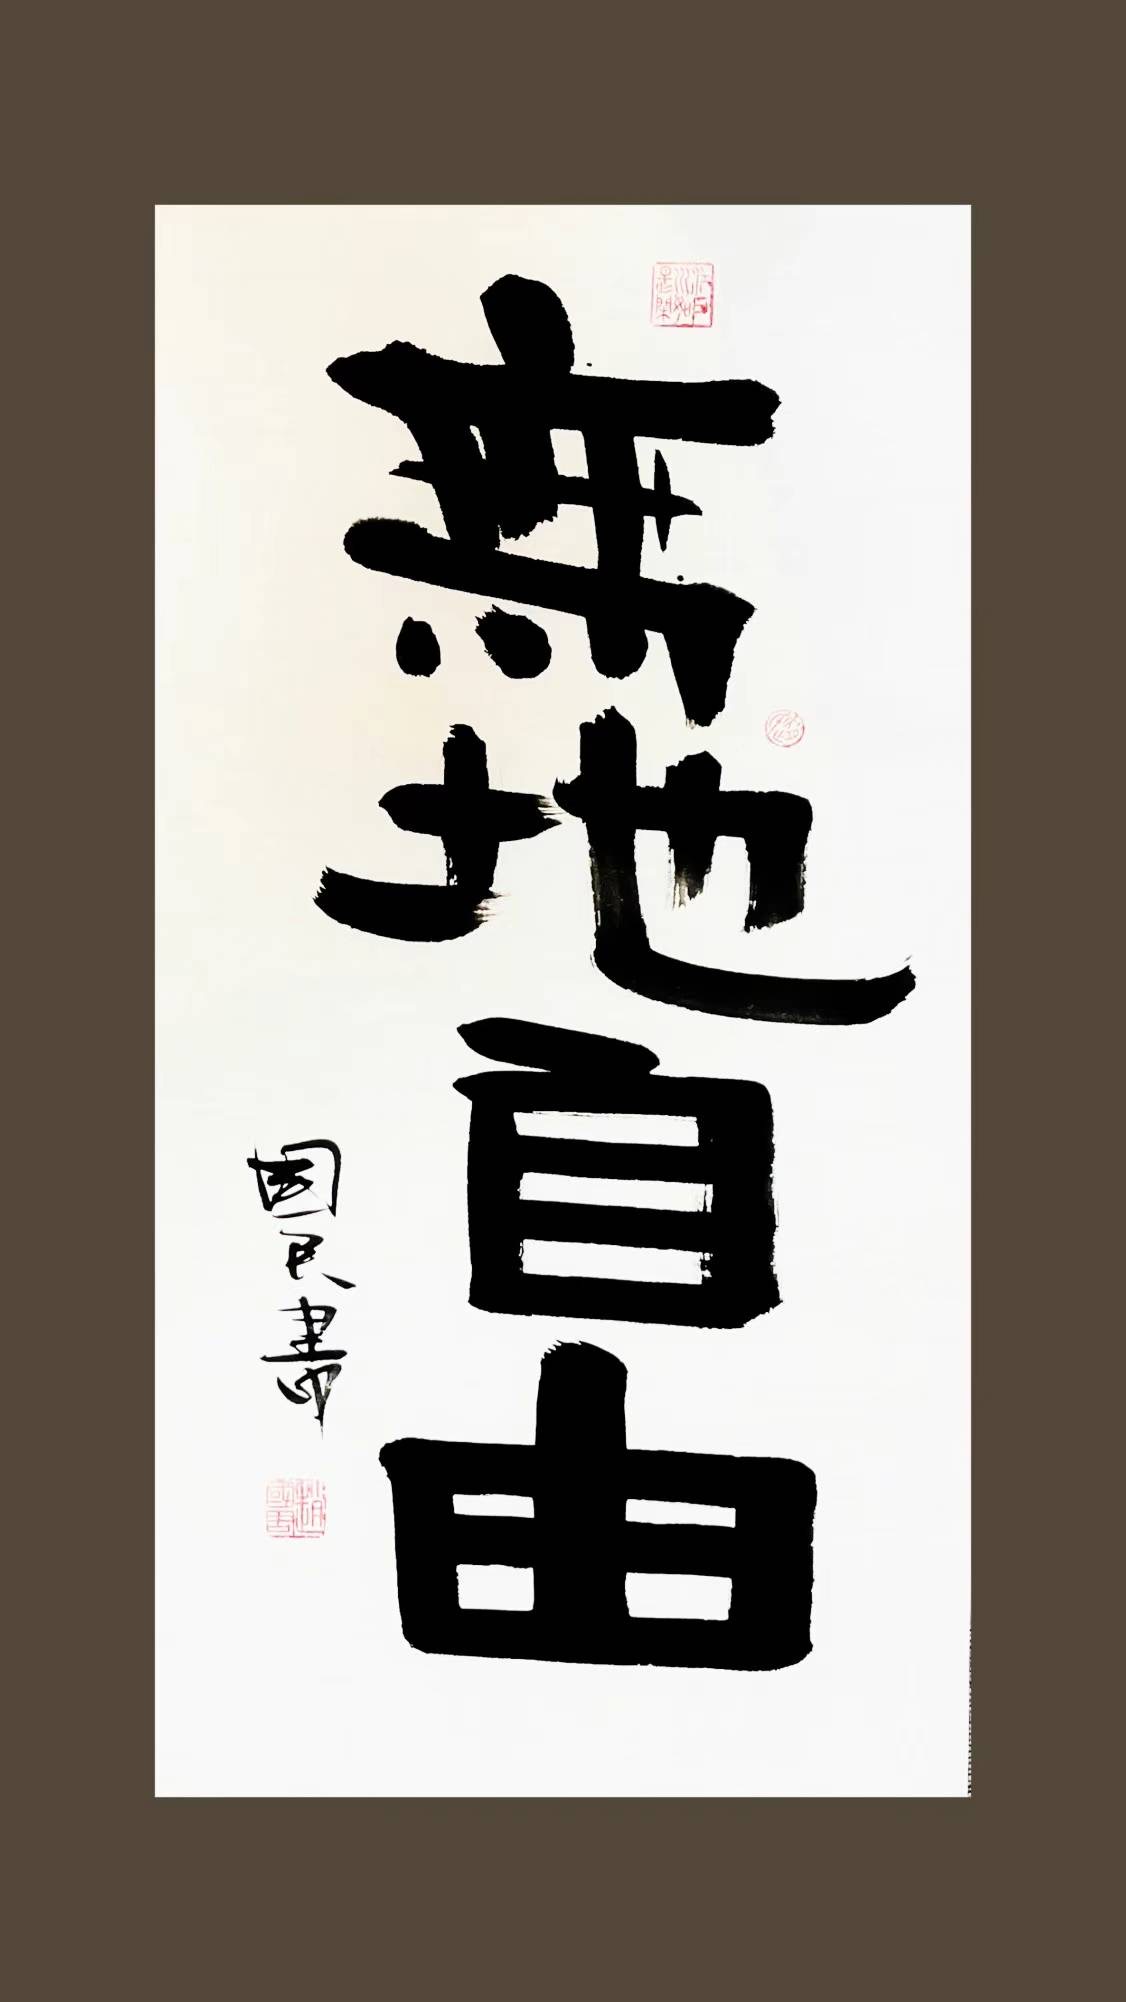 無地自由
國民書